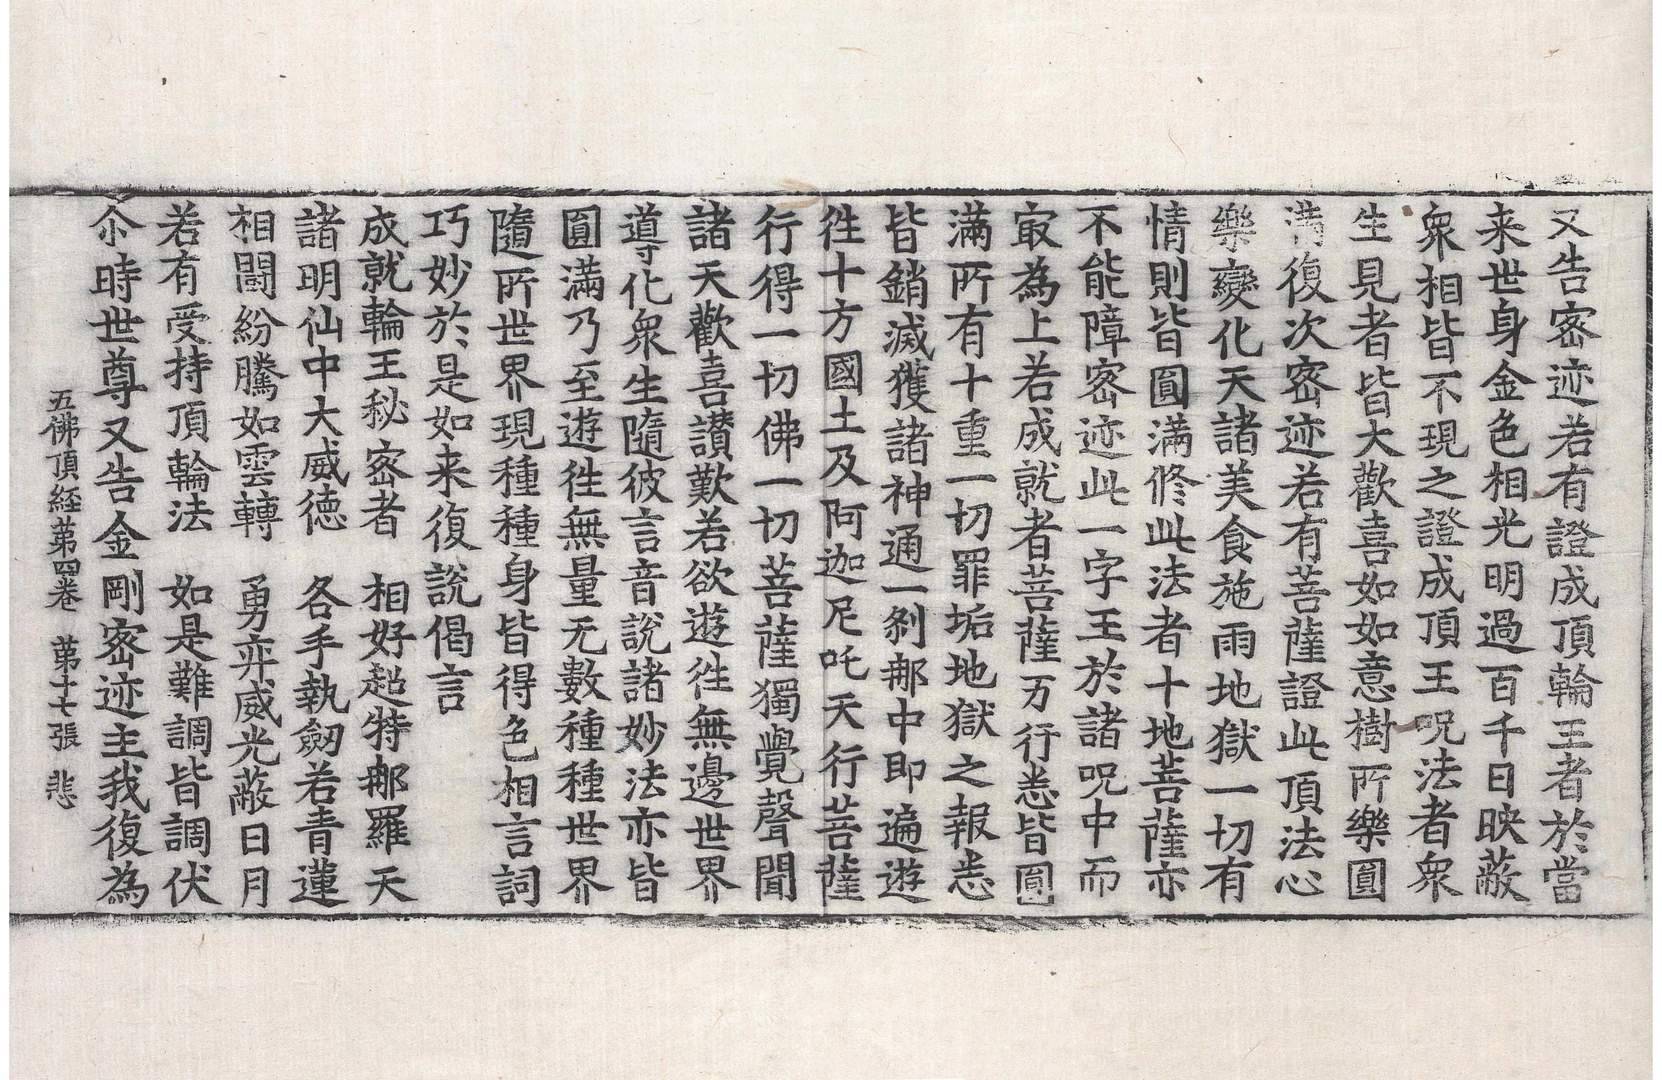 又告密迹若有證成頂輪王者於當
来世身金色相光明過百千日映蔽
衆相皆不現之證成頂王呪法者衆
生見者皆大歡喜如如意樹所樂圓
满復次密迹若有菩薩證此頂法心
樂變化天諸美食施雨地獄一切有
情則皆圓滿修此法者十地菩薩亦
不能障密迹此一字王於諸呪中而
㝡為上若成就者菩薩万行悉皆圓
滿所有十重一切罪垢地獄之報悉
皆銷滅獲諸神通一刹那中即遍遊
徃十方國土及阿迦尼吒天行菩薩
行得一切佛一切菩薩獨覺聲聞
諸天歡喜讃歎若欲遊徃無邊世界
導化衆生隨彼言音説諸妙法亦皆
圓滿乃至遊徃無量无數種種世界
隨所世界現種種身皆得色相言詞
巧妙於是如来復説偈言
成就輪王秘密者　相好超特那羅天
諸明仙中大威德　各手執劔若青蓮
相鬪紛騰如雲轉　勇弈威光蔽日月
若有受持頂輪法　如是難調皆調伏
尒時世尊又告金剛密迹主我復為
五佛頂経苐四卷　苐十七張　悲